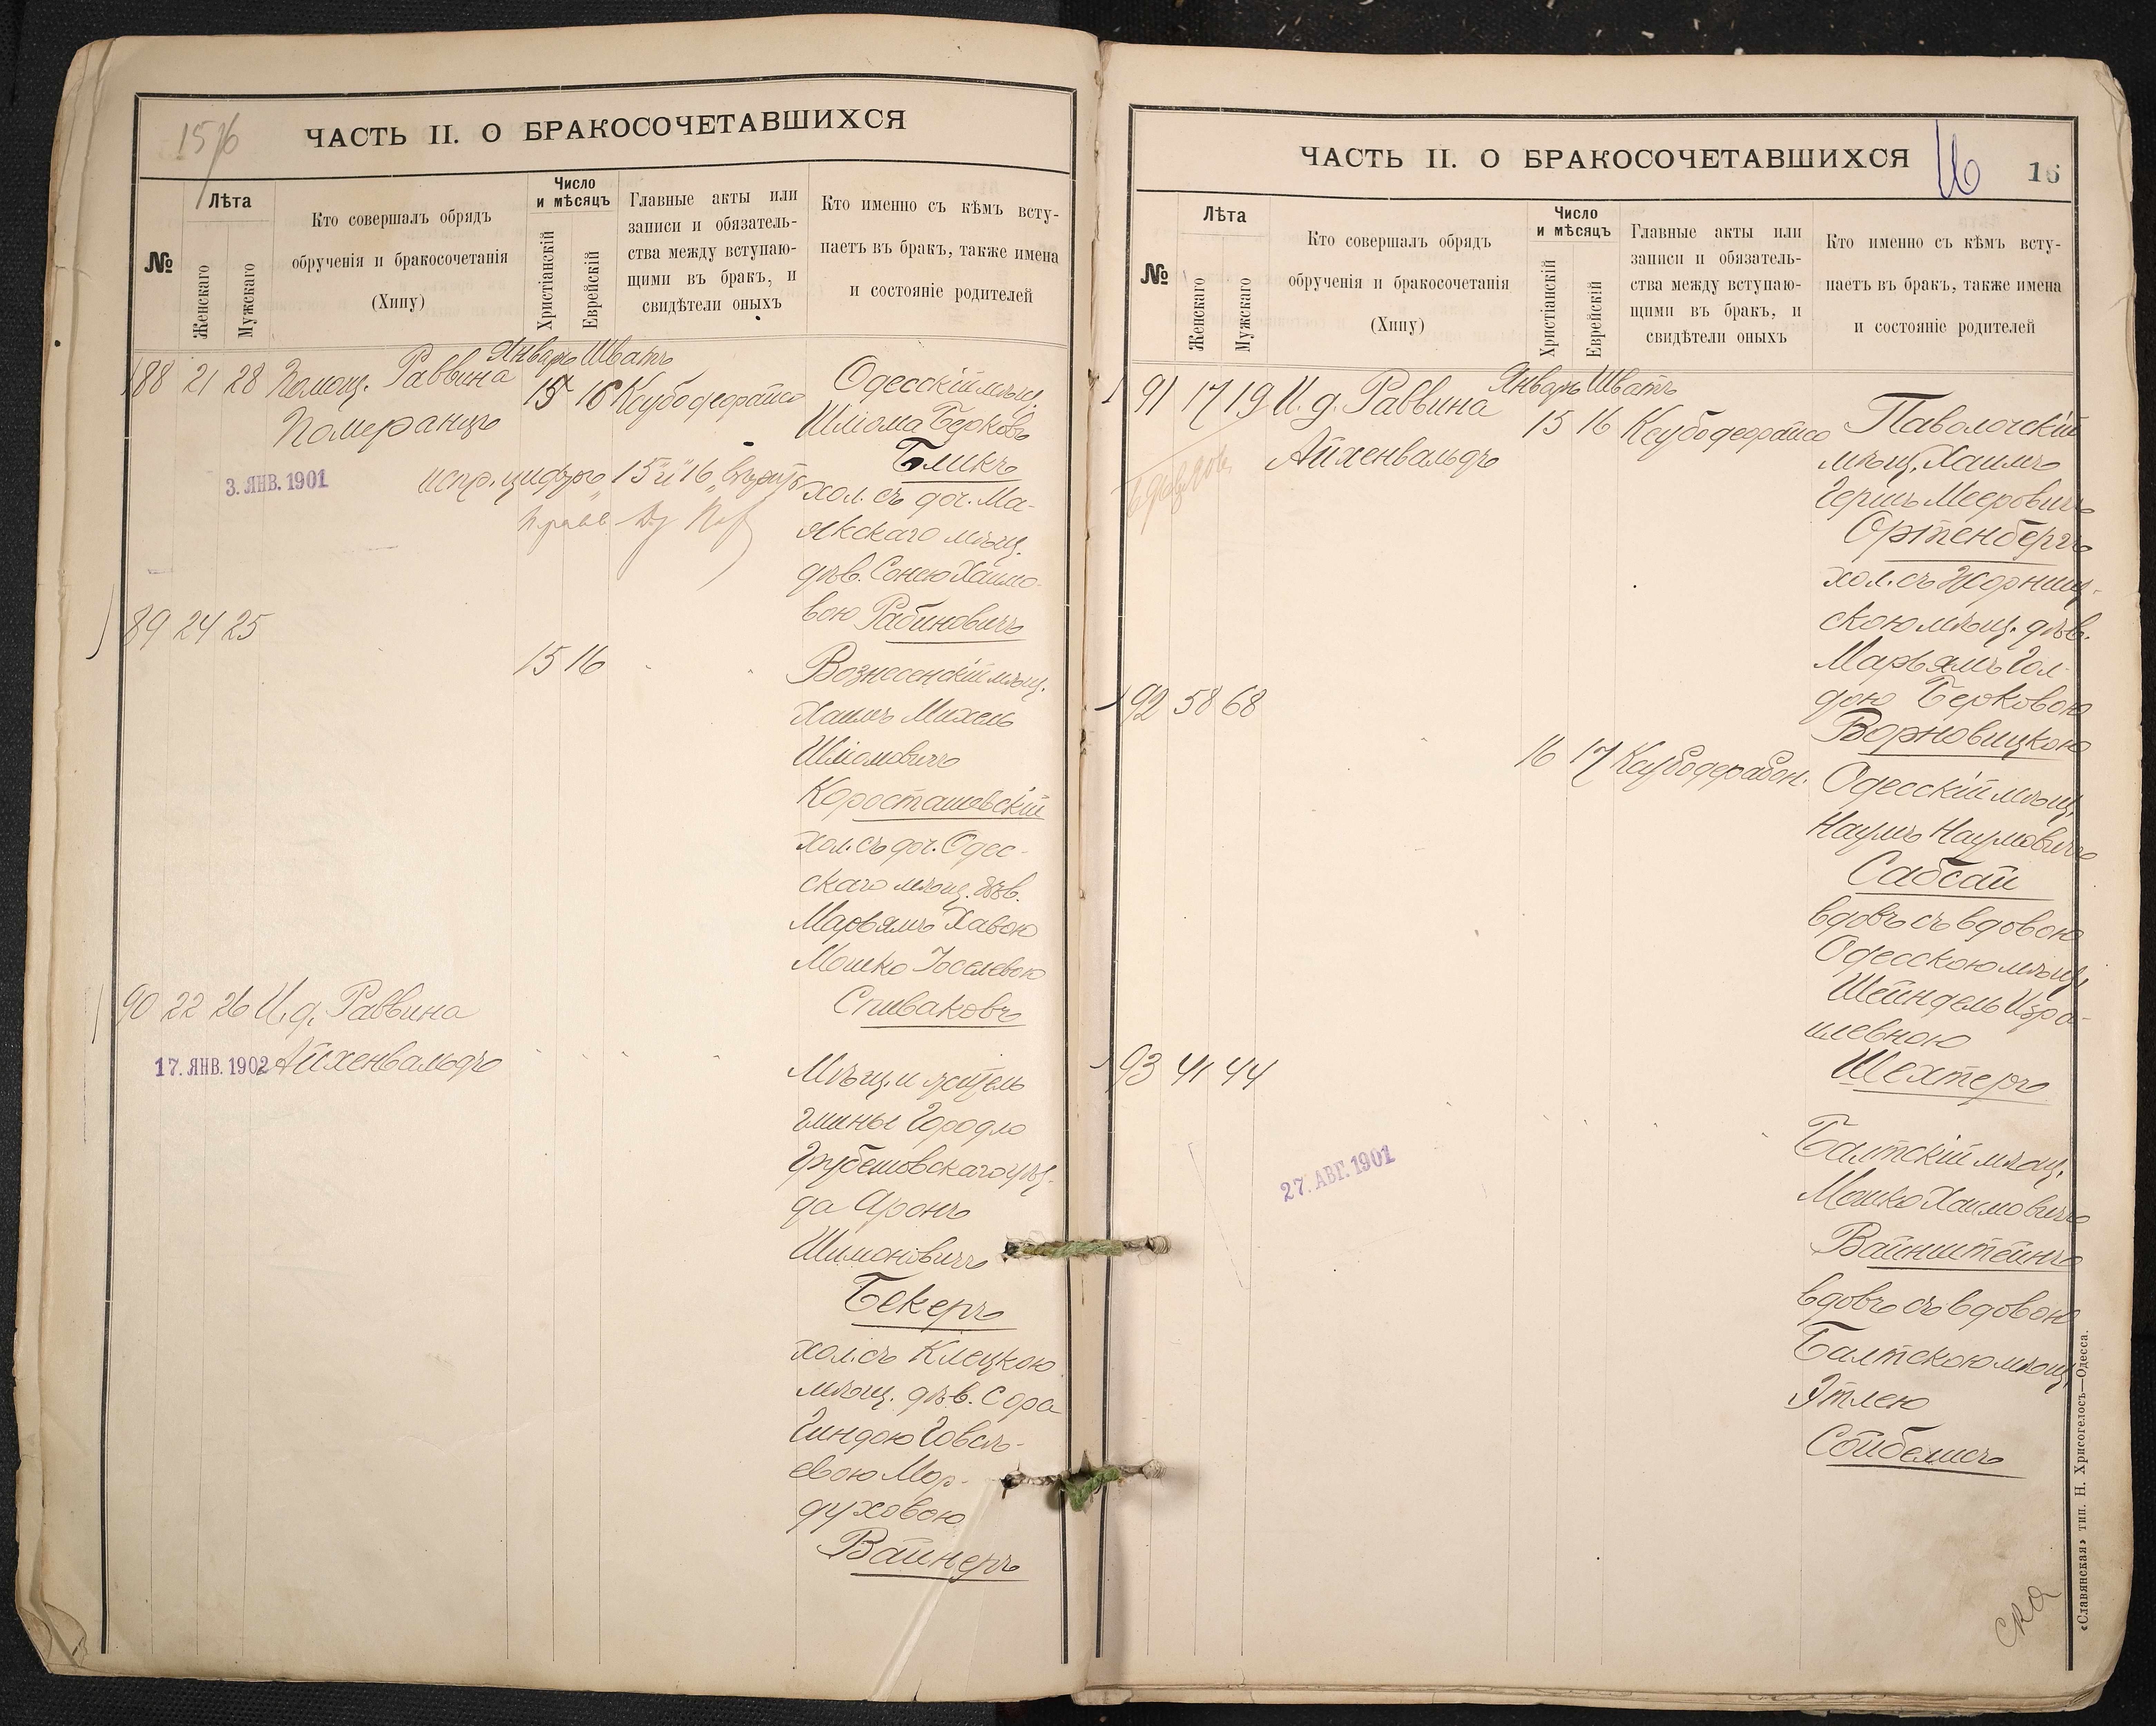 15/16
ЧАСТЬ II. О БРАКОСОЧЕТАВШИХСЯ
№
Лѣта
Женскаго
Мужскаго
Кто совершалъ обрядъ
обрученія и бракосочетанія
(Хипу)
Число
и мѣсяцъ
Христіанскій
Еврейскій
Главные акты или
записи и обязатель-
ства между вступаю-
щими въ бракъ, и
свидѣтели оныхъ
Кто именно съ кѣмъ всту-
паетъ въ бракъ, также имена
и состояніе родителей
Январь Шватъ
88 21 28 Помощ. Раввина
Померанцъ
15 16
Одесскій мѣщ.
Шлiома Берковъ
Бликъ
хол. съ доч. Ма-
якскаго мѣщ.
дѣв. Сонею Хаимо-
вою Рабиновичъ
3. ЯНВ. 1901
испр. цифръ "15" и "16"
89 24 25
15 16
Вознесенскій мѣщ.
Хаимъ Михель
Шліомовичъ
Коросташевскій
хол. съ доч. Одес-
скаго мѣщ. дѣв.
Марьямъ Хавою
Мошко Іоселевою
Спиваковъ
90 22 26 И. д. Раввина
Айхенвальдъ
17. ЯНВ. 1902
Мѣщ. и житель
гмины Городло
Грубешовскаго уѣз-
да Аронъ
Шимоновичъ
Бекеръ
хол. съ Клецкою
мѣщ. дѣв. Сора
Гиндою Говсѣ-
евою Мор-
духовою
Вайнеръ
ЧАСТЬ II. О БРАКОСОЧЕТАВШИХСЯ
16
16
№
Лѣта
Женскаго
Мужскаго
Кто совершалъ обрядъ
обрученія и бракосочетанія
(Хипу)
Число
и мѣсяцъ
Христіанскій
Еврейскій
Главные акты или
записи и обязатель-
ства между вступаю-
щими въ бракъ, и
свидѣтели оныхъ
Кто именно съ кѣмъ всту-
паетъ въ бракъ, также имена
и состояніе родителей
Январь Шватъ
91 17 19 И. д. Раввина
Айхенвальдъ
15 16
Паволочскій
мѣщ. Хаимъ
Гершъ Мееровичъ
Ортенбергъ
хол. съ Жорнищ-
скою мѣщ. дѣв.
Марьямъ Гол-
дою Берковою
Ворновицкою
92 58 68
16 17
Одесскій мѣщ.
Наумъ Наумовичъ
Сабсай
вдовъ съ вдовою
Одесскою мѣщ.
Шейндель Изра-
илевною
Шехтеръ
93 41 44
27. АВГ. 1901
Балтскій мѣщ.
Мошко Хаимовичъ
Вайнштейнъ
вдовъ съ вдовою
Балтскою мѣщ.
Этлею
Сойбелисъ
«Славянская» тип. Н. Хрисогелосъ—Одесса.